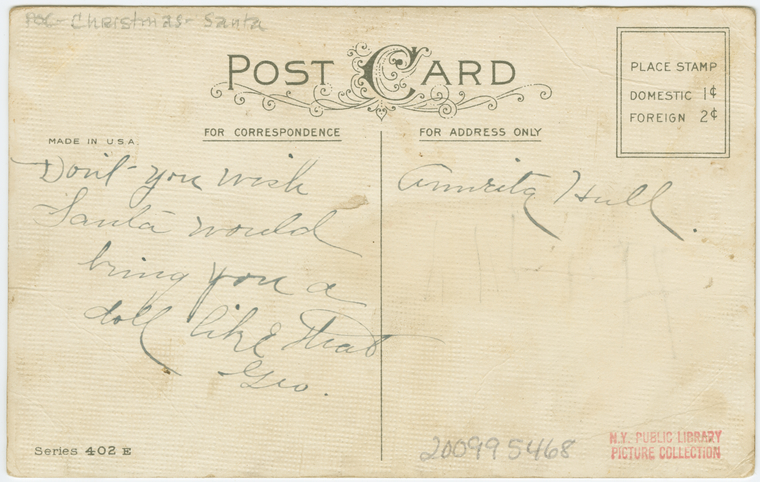 POC - Christmas - Santa
POST CARD
PLACE STAMP
DOMESTIC 1¢
FOREIGN 2¢
MADE IN U.S.A.
FOR CORRESPONDENCE
Don't you wish
Santa would
bring you a
doll like that
Geo.
FOR ADDRESS ONLY
Hull.
Series 402 E
200995468
N.Y. PUBLIC LIBRARY
PICTURE COLLECTION